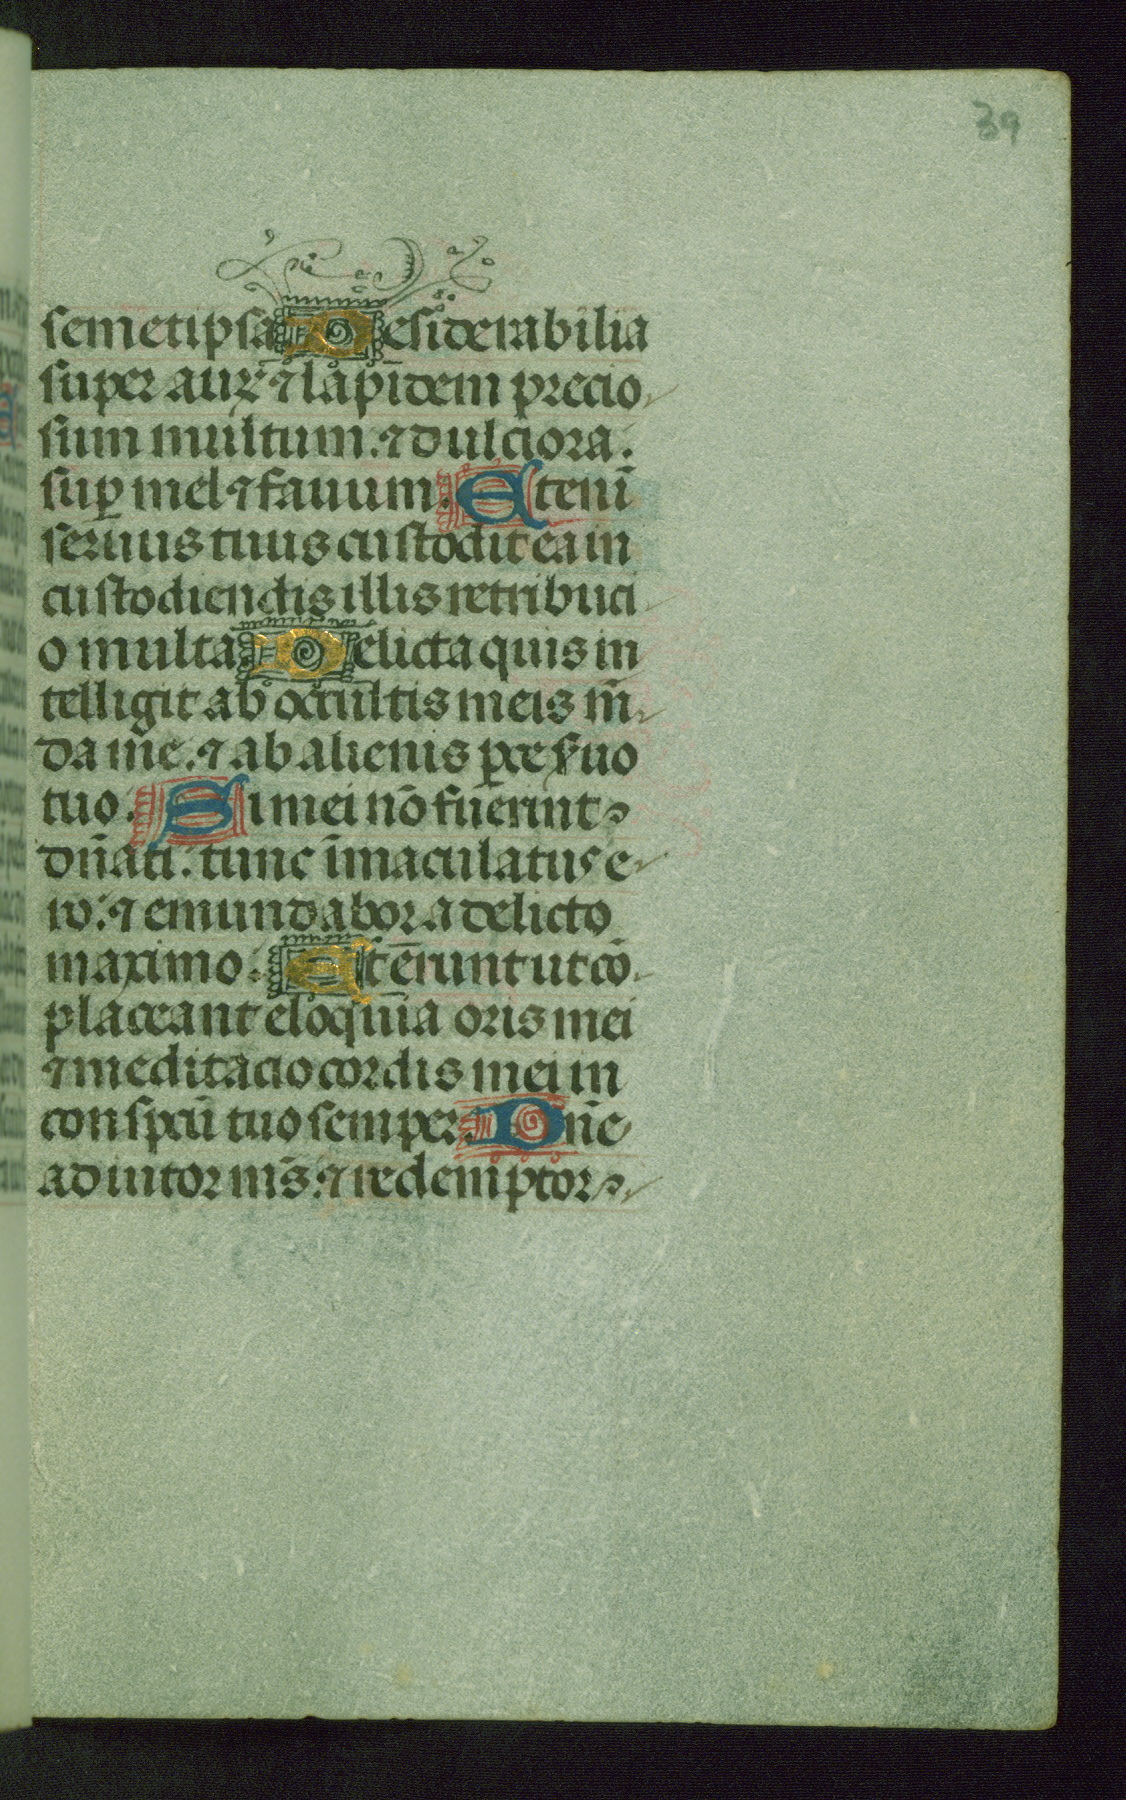 39
semetipsa Desiderabilia
super aurꝫ ⁊ lapidem precio
sum multum. ⁊ dulciora.
suꝑ mel ⁊ fauum. Etenī
seruus tuus custodit ea in
custodiendis illis retribuci
o multa Delicta quis in
telligit ab occultis meis mū
da me. ⁊ ab alienis ꝑce ẜuo
tuo. Si mei nō fuerint
dn̄ati. tunc īmaculatus e
ro. ⁊ emundabor a delicto
maximo. Et erunt ut cō
placeant eloquia oris mei
⁊ meditacio cordis mei in
conspcū tuo semper. Dn̄e
adiutor ms̄. ⁊ redemptor